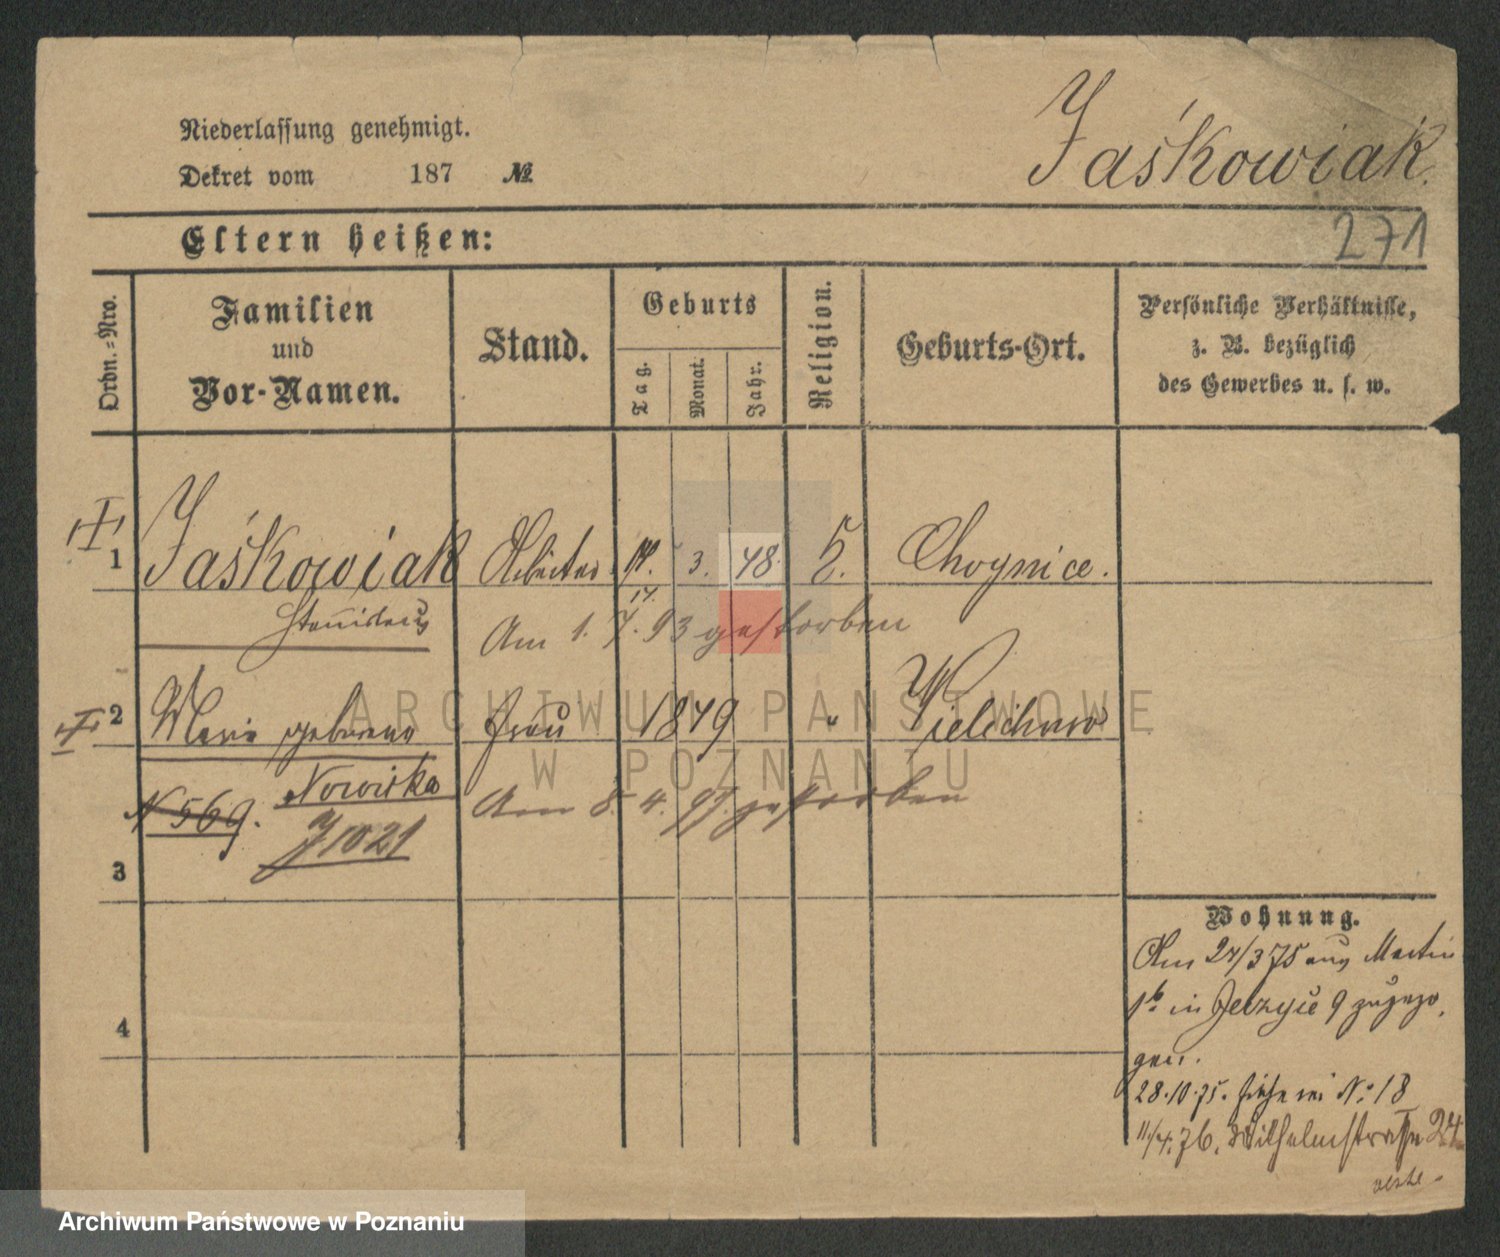 Niederlassung genehmigt.
Dekret vom 187 №
Jaśkowiak.
Eltern heißen:
271
Ordn.-Nro.
Familien und Vor-Namen.
Stand.
Geburts
Tag.
Monat.
Jahr.
Religion.
Geburts-Ort.
Persönliche Verhältnisse,
z. B. bezüglich
des Gewerbes u. s. w.
1 Jaśkowiak Arbeiter 3. 48. Choynice.
17.
Stanislaus
Am 1. 7. 93 gestorben
2 Marie geborene Frau 1849 " Wielichowo
Nowicka
Am 8. 4. 97. gestorben
N 569.
J 1021
3
4
Wohnung.
Am 24/3 75 aus Martin
in Jerzyce 9 zugezo
gen.
28.10.75. No 18
11/4. 76. Wilhelmstraße 24
ARCHIWUM PAŃSTWOWE
W POZNANIU
Archiwum Państwowe w Poznaniu